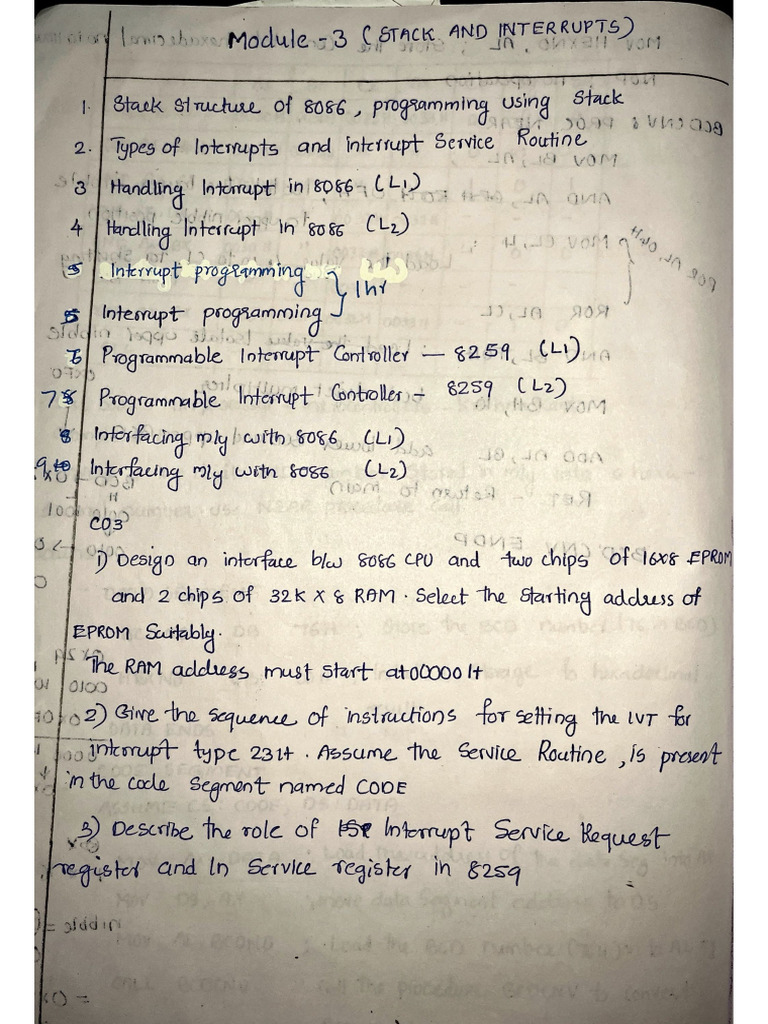 Module - 3 (STACK AND INTERRUPTS)
1. Stack Structure of 8086, programming using Stack
2. Types of Interrupts and interrupt Service Routine
3 Handling Interrupt in 8086 (L1)
4 Handling Interrupt in 8086 (L2)
5 Interrupt programming
1hr
5 Interrupt programming
6 Programmable Interrupt Controller - 8259 (L1)
7 Programmable Interrupt Controller - 8259 (L2)
8 Interfacing m/y with 8086 (L1)
9. Interfacing m/y with 8086 (L2)
CO3
1) Design an interface b/w 8086 CPU and two chips of 16x8 EPROM
and 2 chips of 32K X 8 RAM. Select the starting address of
EPROM Suitably.
The RAM address must start at 00000H
2) Give the sequence of instructions for setting the IVT for
interrupt type 23H. Assume the Service Routine, is present
in the code Segment named CODE
3) Describe the role of Interrupt Service Request
register and In Service register in 8259